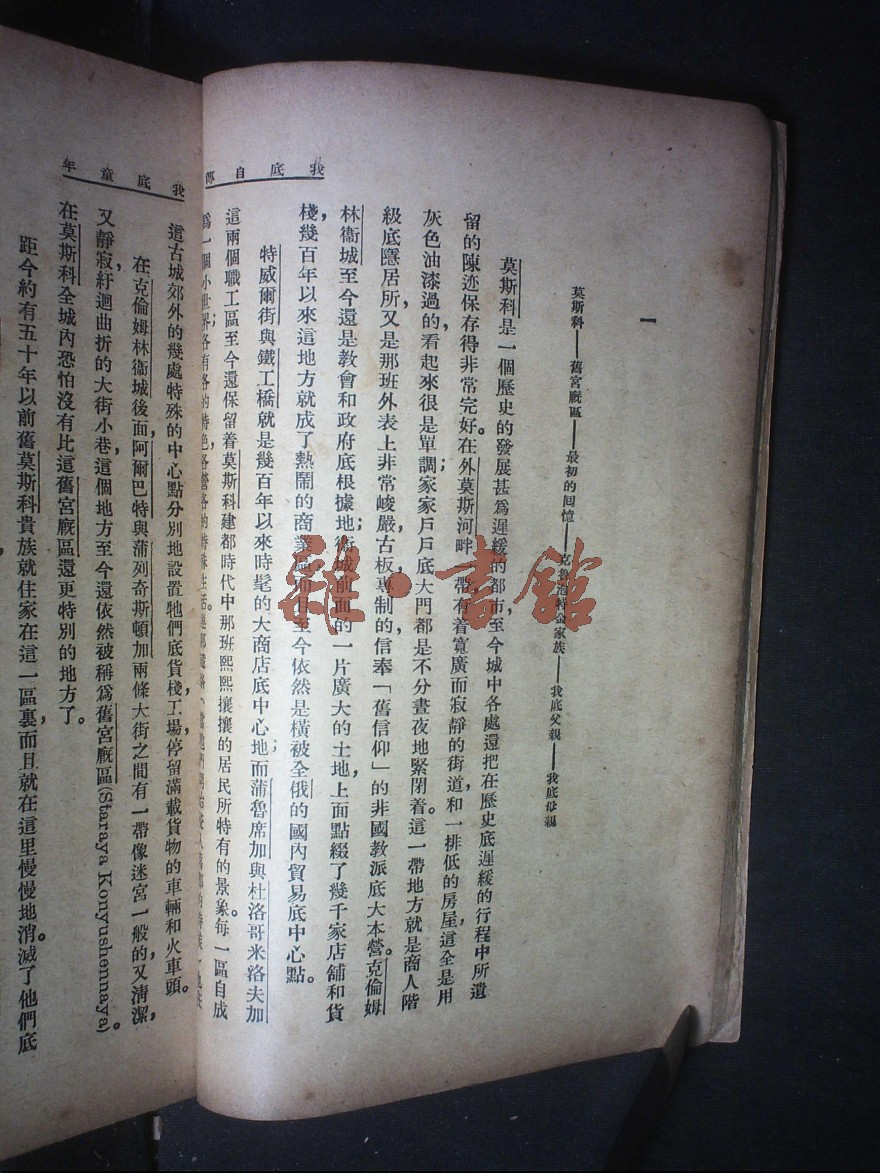 我底自傳
一
莫斯科——舊宮廐區——最初的回憶——克魯泡特金家族——我底父親——我底母親
莫斯科是一個歷史的發展甚爲遲緩的都市，至今城中各處還把在歷史底遲緩的行程中所遺
留的陳迹保存得非常完好。在外莫斯河畔，帶有着寬廣而寂靜的街道和一排低的房屋，這全是用
灰色油漆過的，看起來很是單調；家家戶戶底大門都是不分晝夜地緊閉着。這一帶地方就是商人階
級底隱居所，又是那班外表上非常峻嚴，古板，專制的信奉「舊信仰」的非國教派底大本營。克倫姆
林衞城至今還是教會和政府底根據地；衞城前面的一片廣大的土地，上面點綴了幾千家店舖和貨
棧，幾百年以來這地方就成了熱鬧的商業區而且至今依然是橫被全俄的國內貿易底中心點。
特威爾街與鐵工橋就是幾百年以來時髦的大商店底中心地；而蒲魯席加與杜洛哥米洛夫加
這兩個職工區至今還保留着莫斯科建都時代中那班熙熙攘攘的居民所特有的景象。每一區自成
爲一個小世界；各有各的特色，各營各的特殊生活。
我底童年
這古城郊外的幾處特殊的中心點分別地設置牠們底貨棧，工場，停留滿載貨物的車輛和火車頭。
在克倫姆林衞城後面，阿爾巴特與蒲列奇斯頓加兩條大街之間有一帶像迷宮一般的，又淸潔，
又靜寂，紆迴曲折的大街小巷，這個地方至今還依然被稱爲舊宮廐區(Staraya Konyushennaya)。
在莫斯科全城內恐怕沒有比這舊宮廐區還更特別的地方了。
距今約有五十年以前，舊莫斯科貴族就住家在這一區裏，而且就在這里慢慢地消滅了。他們底
雜·書館